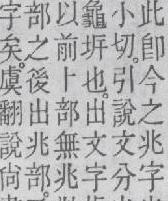 此即今之兆字
小切。引說文分
龜坼也。出文字
以前卜部無兆
部之後出兆部。
字矣。虞翻說尙